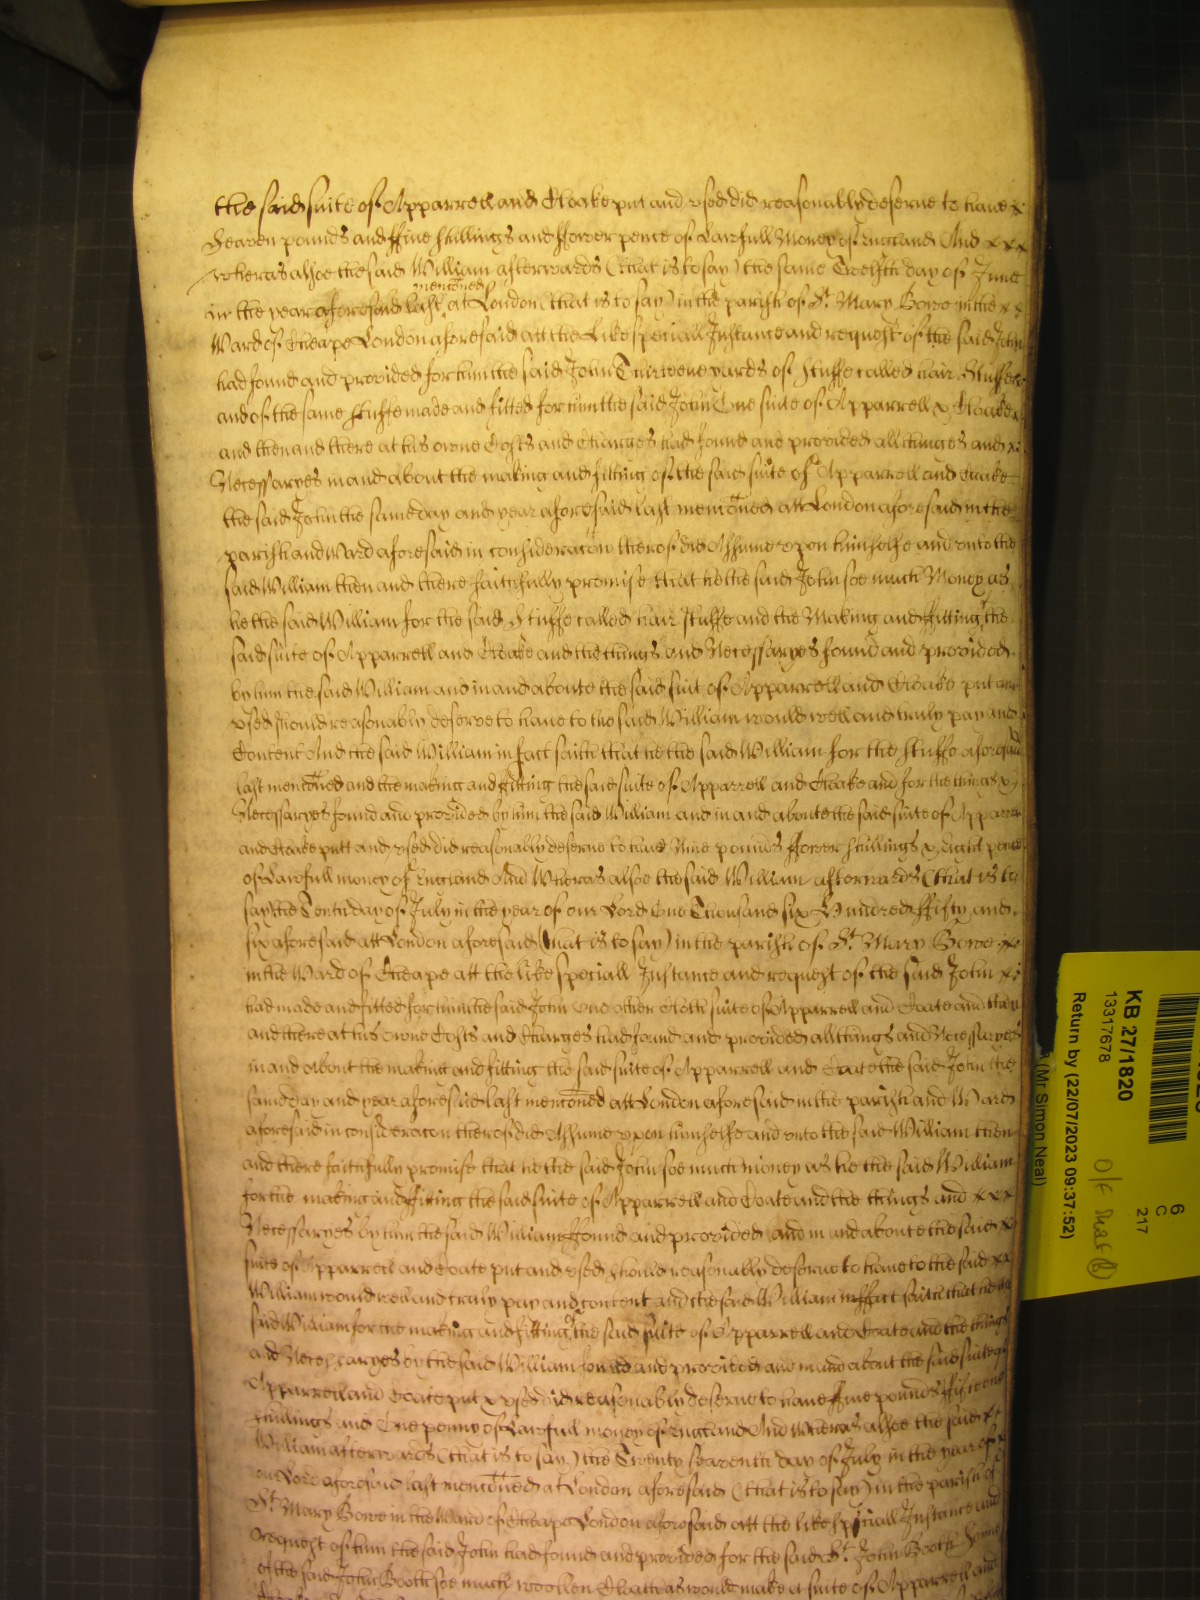 the said suite of Apparrell and Cloake put and vsed did reasonably deserue to haue x
Seaven pounds and ffiue shillings and ffower pence of Lawfull Money of England And x x x
whereas alsoe the said William afterwards (that is to say) the same Twelfth day of June
in the year aforesaid last mencioned at London (that is to say) in the parish of St. Mary Bowe in the x x
Ward of Cheape London aforesaid att the Like speciall Instance and request of the said John
had found and provided for him the said John Thirteene yards of stuffe called hair stuffe
and of the same stuffe made and fitted for him the said John One suite of Apparrell & Cloake
and then and there at his owne Costs and Charges had found and provided all things and x
Necessaryes in and about the making and fitting of the said suite of Apparrell and Cloake
the said John the same day and year aforesaid last menconed att London aforesaid in the
parish and Ward aforesaid in consideracon thereof did Assume vpon himselfe and vnto the
said William then and there faithfully promise that he the said John soe much Money as
he the said William for the said Stuffe called hair stuffe and the Making and ffitting the
said suite of Apparrell and Cloake and the things and Necessaryes found and provided
by him the said William and in and aboute the said suit of Apparrell and Cloake put and
vsed should reasonably deserve to haue to the said William would well and truly pay and
Content And the said William in fact saith that he the said William for the stuffe aforesaid
last menconed and the making and ffitting the said suite of Apparrell and Cloake and for the things &
Necessaryes found and provided by him the said William and in and aboute the said suite of Apparrell
and Cloake putt and vsed did reasonably deserue to haue Nine pounds ffower shillings & eight pence
of Lawfull money of England And Whereas alsoe the said William afterwards (that is to
say) the Tenth day of July in the year of our Lord One Thousand six Hundred ffifty and
six aforesaid att London aforesaid (that is to say) in the parish of St. Mary Bowe x x
in the Ward of Cheape att the like speciall Instance and request of the said John x x
had made and fitted for him the said John One other Cloth suite of Apparrell and Coate and then
and there at his owne Costs and Charges had found and provided all things and Necessaryes
in and about the making and fitting the said suite of Apparrell and Coate the said John the
same day and year aforesaid last menconed att London aforesaid in the parish and Ward
aforesaid in consideracon thereof did Assume vpon himselfe and vnto the said William then
and there faithfully promise that he the said John soe much money as he the said William
for the making and ffitting the said suite of Apparrell and Coate and the things and x x x
Necessaryes by him the said William ffound and provided and in and aboute the said x
suite of Apparrell and Coate put and vsed should reasonably deserue to haue to the said x x
William would well and truly pay and content And the said William in ffact saith that he the
said William for the making and fitting of the said suite of Apparrell and Coate and the things
and Necessaryes by the said William found and provided and in and about the said suite of
Apparrell and Coate put & vsed did reasonably deserue to haue ffiue pounds ffifteene
shillings and One penny of Lawfull money of England And Whereas alsoe the said x x
William afterwards (that is to say) the Twenty Seaventh day of July in the year of
our Lord aforesaid last menconed at London aforesaid (that is to say) in the parish of
St. Mary Bowe in the Ward of Cheape London aforesaid att the like speciall Instance and
request of him the said John had found and provided for the said St. John Booth
of the said John Booth soe much woollen Cloath as would make a suite of Apparrell and
KB 27/1820
13317678
Return by (22/07/2023 09:37:52)
(Mr Simon Neal)
6
C
217